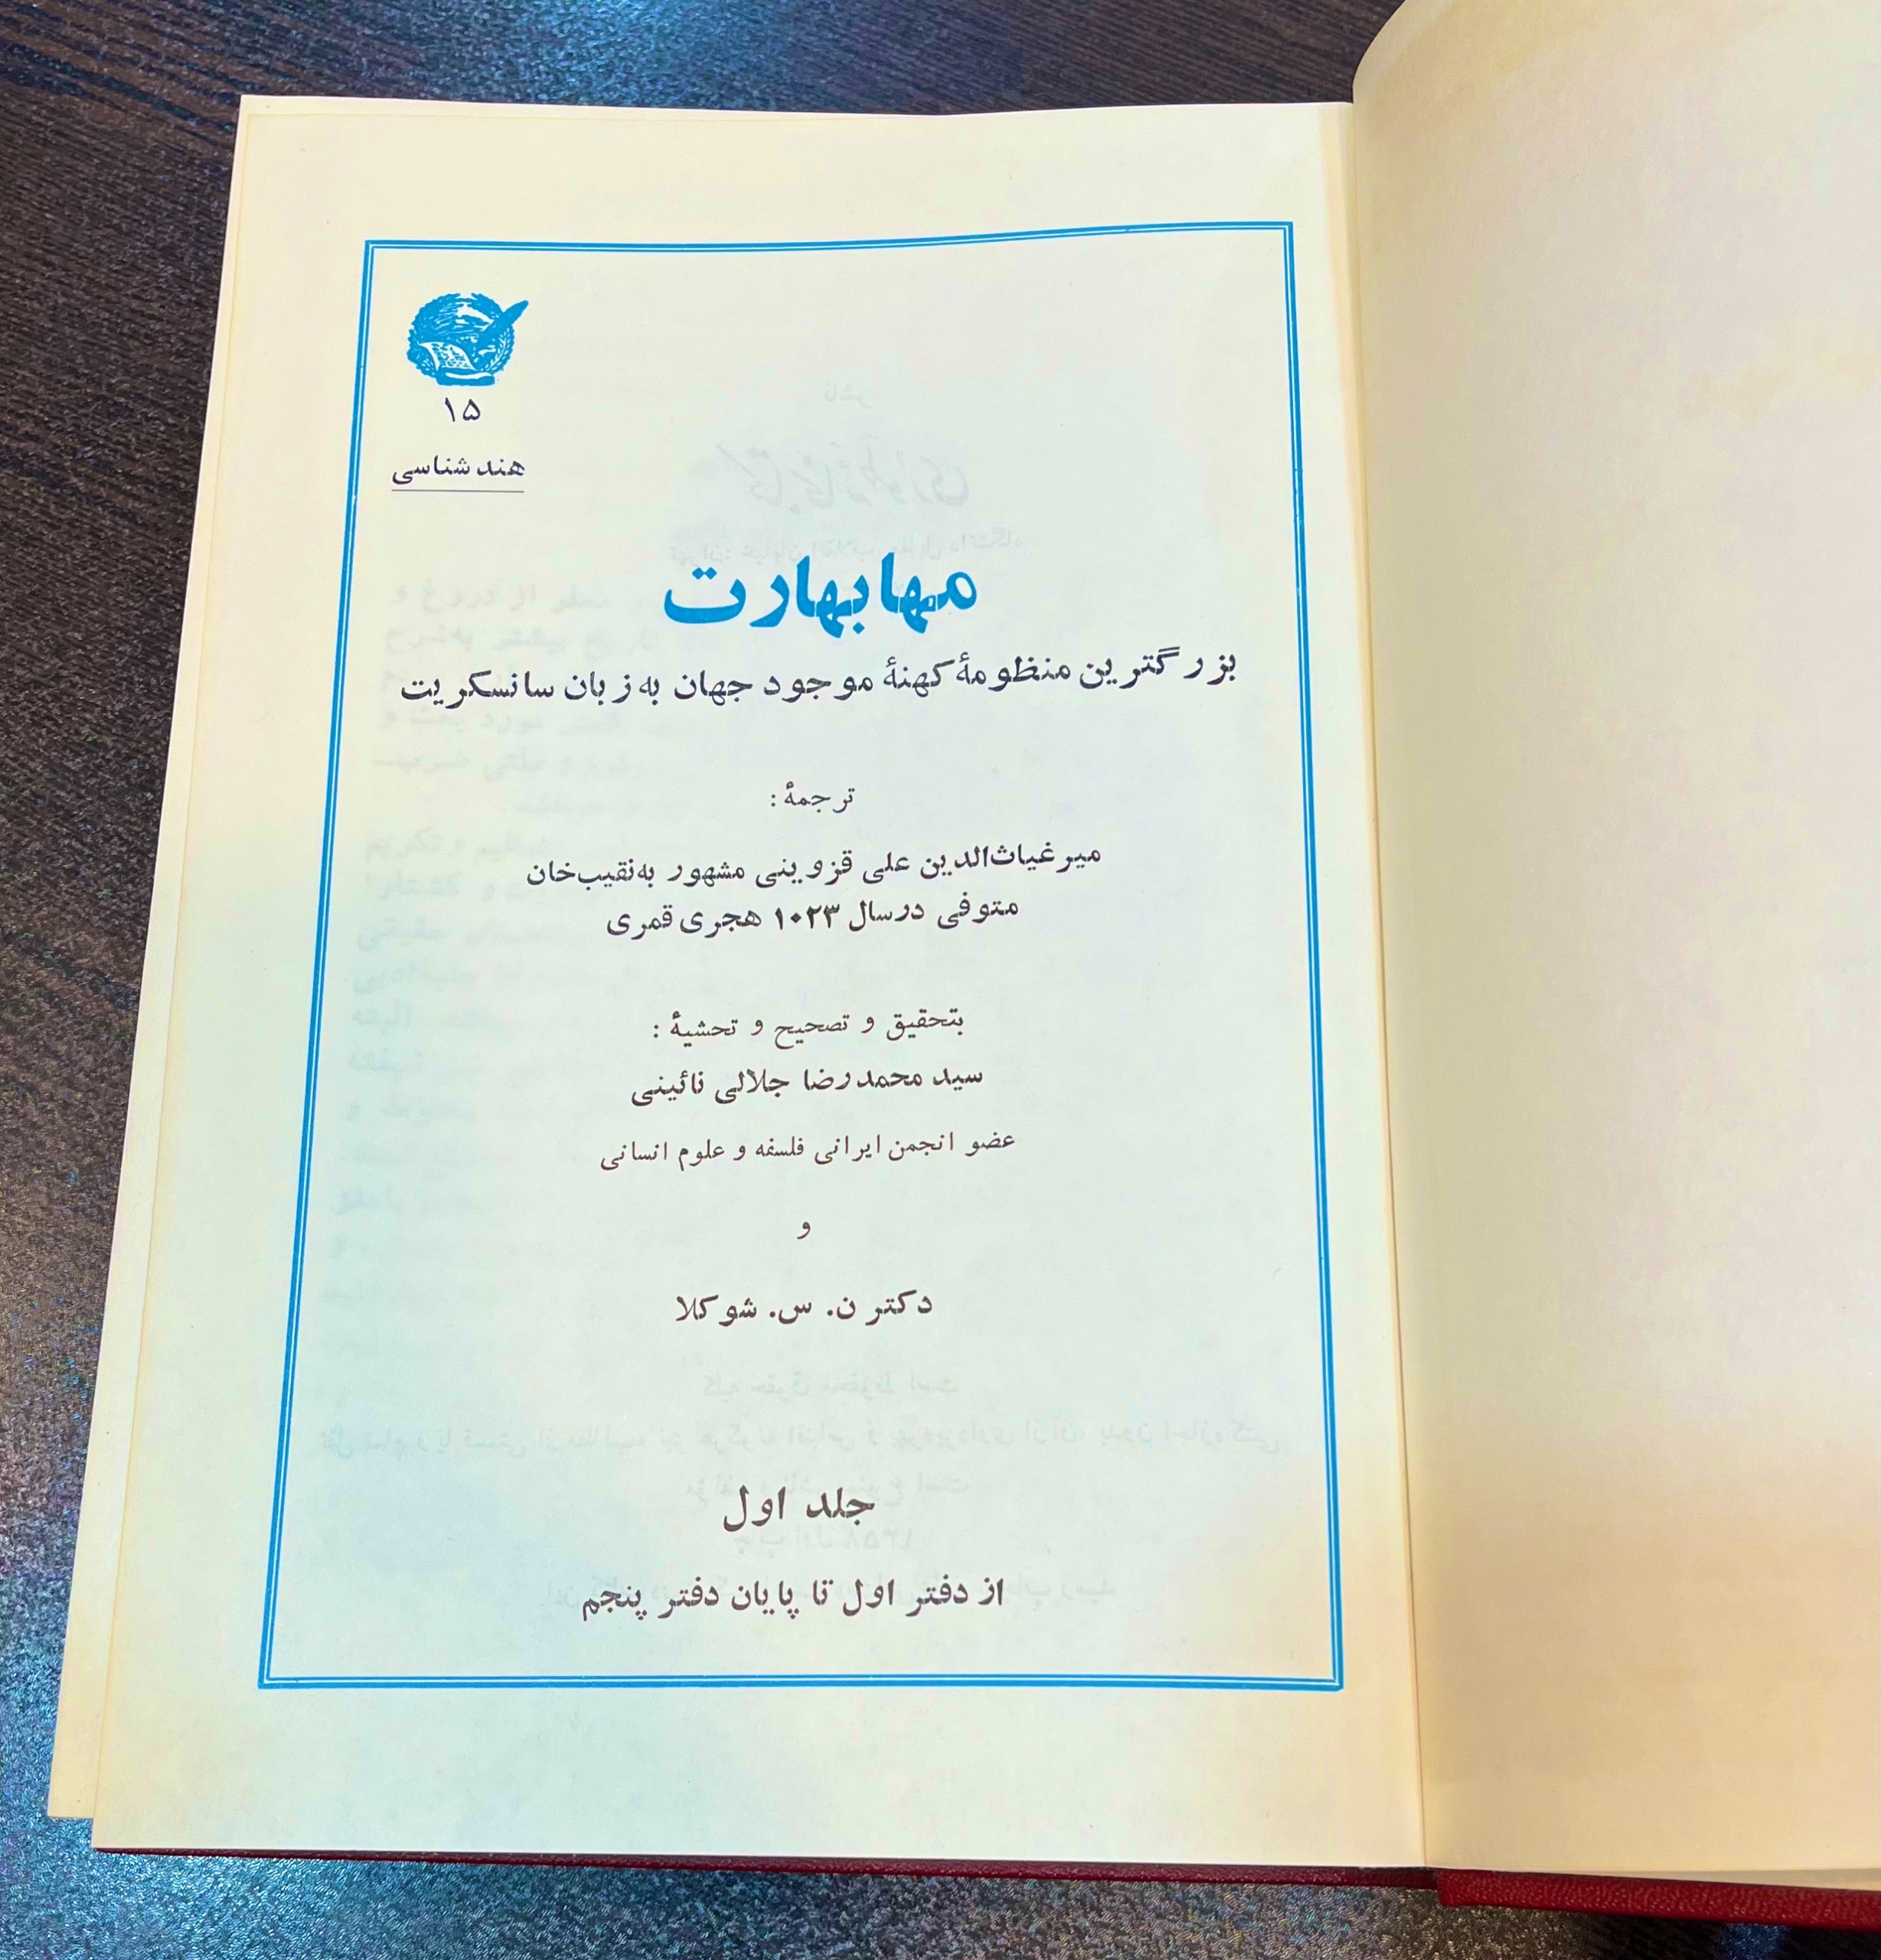 ۱۵
هند شناسی
مهابهارت
بزرگترین منظومهٔ کهنهٔ موجود جهان به زبان سانسکریت
ترجمهٔ :
میر غیاث‌الدین علی قزوینی مشهور به نقیب‌خان
متوفی در سال ۱۰۲۳ هجری قمری
بتحقیق و تصحیح و تحشیهٔ :
سید محمد رضا جلالی نائینی
عضو انجمن ایرانی فلسفه و علوم انسانی
و
دکتر ن. س. شوکلا
جلد اول
از دفتر اول تا پایان دفتر پنجم